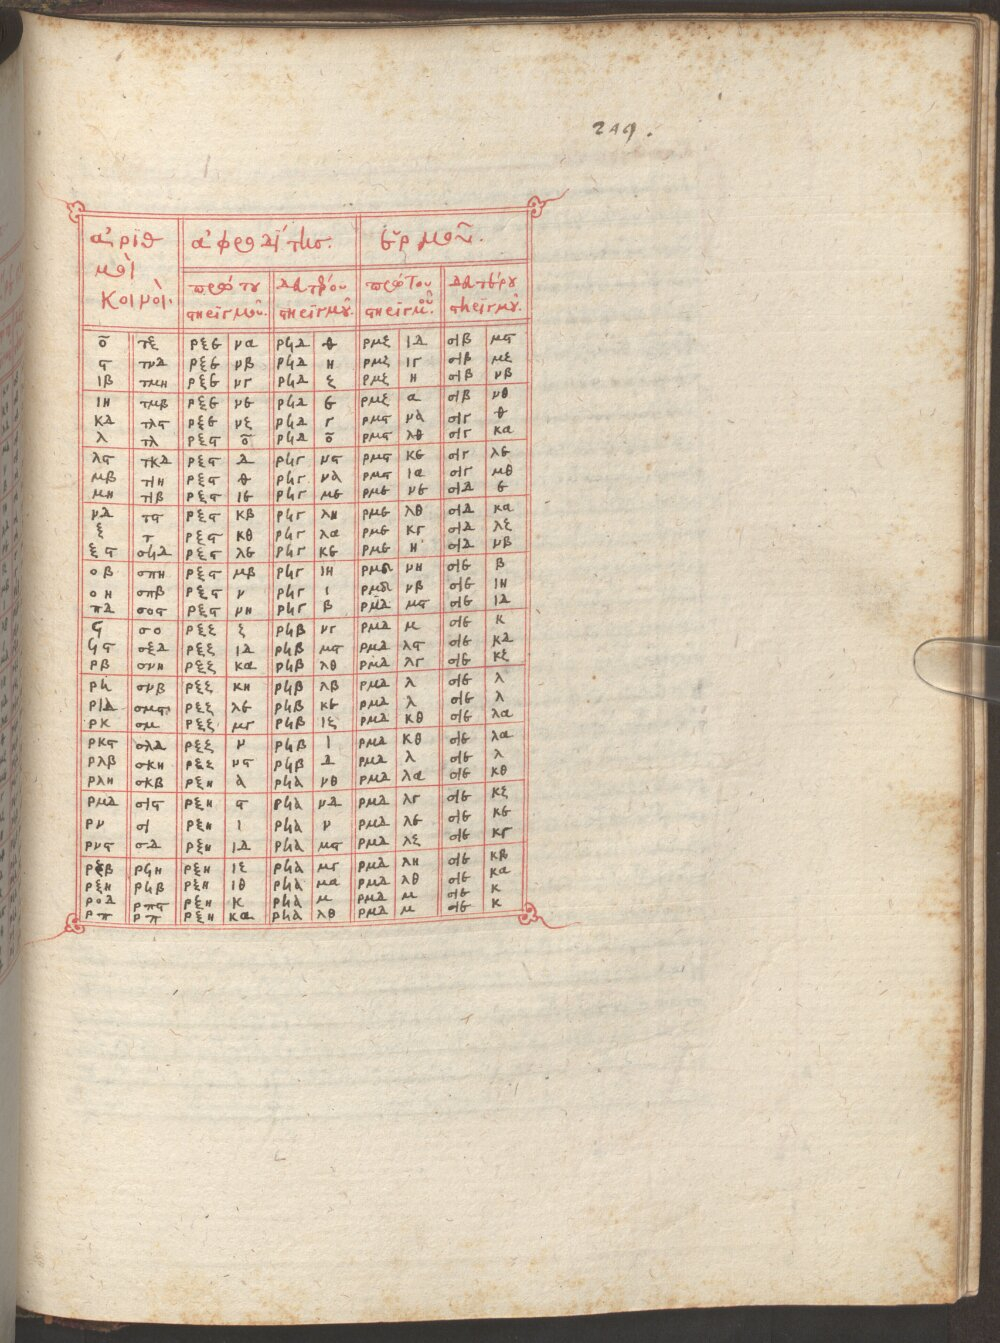 249.
ἀριθ
μοὶ
κοινοί.
ἀφροδίτης. ἑρμοῦ.
πρώτου δευτέρου πρώτου δευτέρου
στηριγμοῦ. στηριγμοῦ. στηριγμοῦ. στηριγμοῦ.
ο τξ ρξε να ρϟδ θ ρμζ ιδ σιβ μϛ
ϛ τνδ ρξε νβ ρϟδ η ρμζ ιγ σιβ μζ
ιβ τμη ρξε νγ ρϟδ ζ ρμζ η σιβ νβ
ιη τμβ ρξε νε ρϟδ ε ρμζ α σιβ νθ
κδ τλϛ ρξε νζ ρϟδ γ ρμϛ να σιγ θ
λ τλ ρξϛ ο ρϟδ ο ρμϛ λθ σιγ κα
λϛ τκδ ρξϛ δ ρϟγ νϛ ρμϛ κε σιγ λε
μβ τιη ρξϛ θ ρϟγ να ρμϛ ια σιγ μθ
μη τιβ ρξϛ ιε ρϟγ με ρμε νε σιδ ε
νδ τϛ ρξϛ κβ ρϟγ λη ρμε λθ σιδ κα
ξ τ ρξϛ κθ ρϟγ λα ρμε κγ σιδ λζ
ξϛ σϟδ ρξϛ λε ρϟγ κε ρμε η σιδ νβ
οβ σπη ρξϛ μβ ρϟγ ιη ρμδ νη σιε β
οη σπβ ρξϛ ν ρϟγ ι ρμδ νβ σιε ιη
πδ σοϛ ρξϛ νη ρϟγ β ρμδ μϛ σιε ιδ
ϟ σο ρξζ ζ ρϟβ νγ ρμδ μ σιε κ
ϟϛ σξδ ρξζ ιδ ρϟβ μϛ ρμδ λϛ σιε κδ
ρβ σνη ρξζ κα ρϟβ λθ ρμδ λγ σιε κζ
ρη σνβ ρξζ κη ρϟβ λβ ρμδ λ σιε λ
ριδ σμϛ ρξζ λε ρϟβ κε ρμδ λ σιε λ
ρκ σμ ρξζ μγ ρϟβ ιζ ρμδ κθ σιε λα
ρκϛ σλδ ρξζ ν ρϟβ ι ρμδ κθ σιε λα
ρλβ σκη ρξζ νϛ ρϟβ δ ρμδ λ σιε λ
ρλη σκβ ρξη α ρϟα νθ ρμδ λα σιε κθ
ρμδ σιϛ ρξη ϛ ρϟα νδ ρμδ λγ σιε κζ
ρν σι ρξη ι ρϟα ν ρμδ λε σιε κε
ρνϛ σδ ρξη ιδ ρϟα μϛ ρμδ λζ σιε κγ
ρξβ ρϟη ρξη ιζ ρϟα μγ ρμδ λη σιε κβ
ρξη ρϟβ ρξη ιθ ρϟα μα ρμδ λθ σιε κα
ροδ ρπϛ ρξη κ ρϟα μ ρμδ μ σιε κ
ρπ ρπ ρξη κα ρϟα λθ ρμδ μ σιε κ